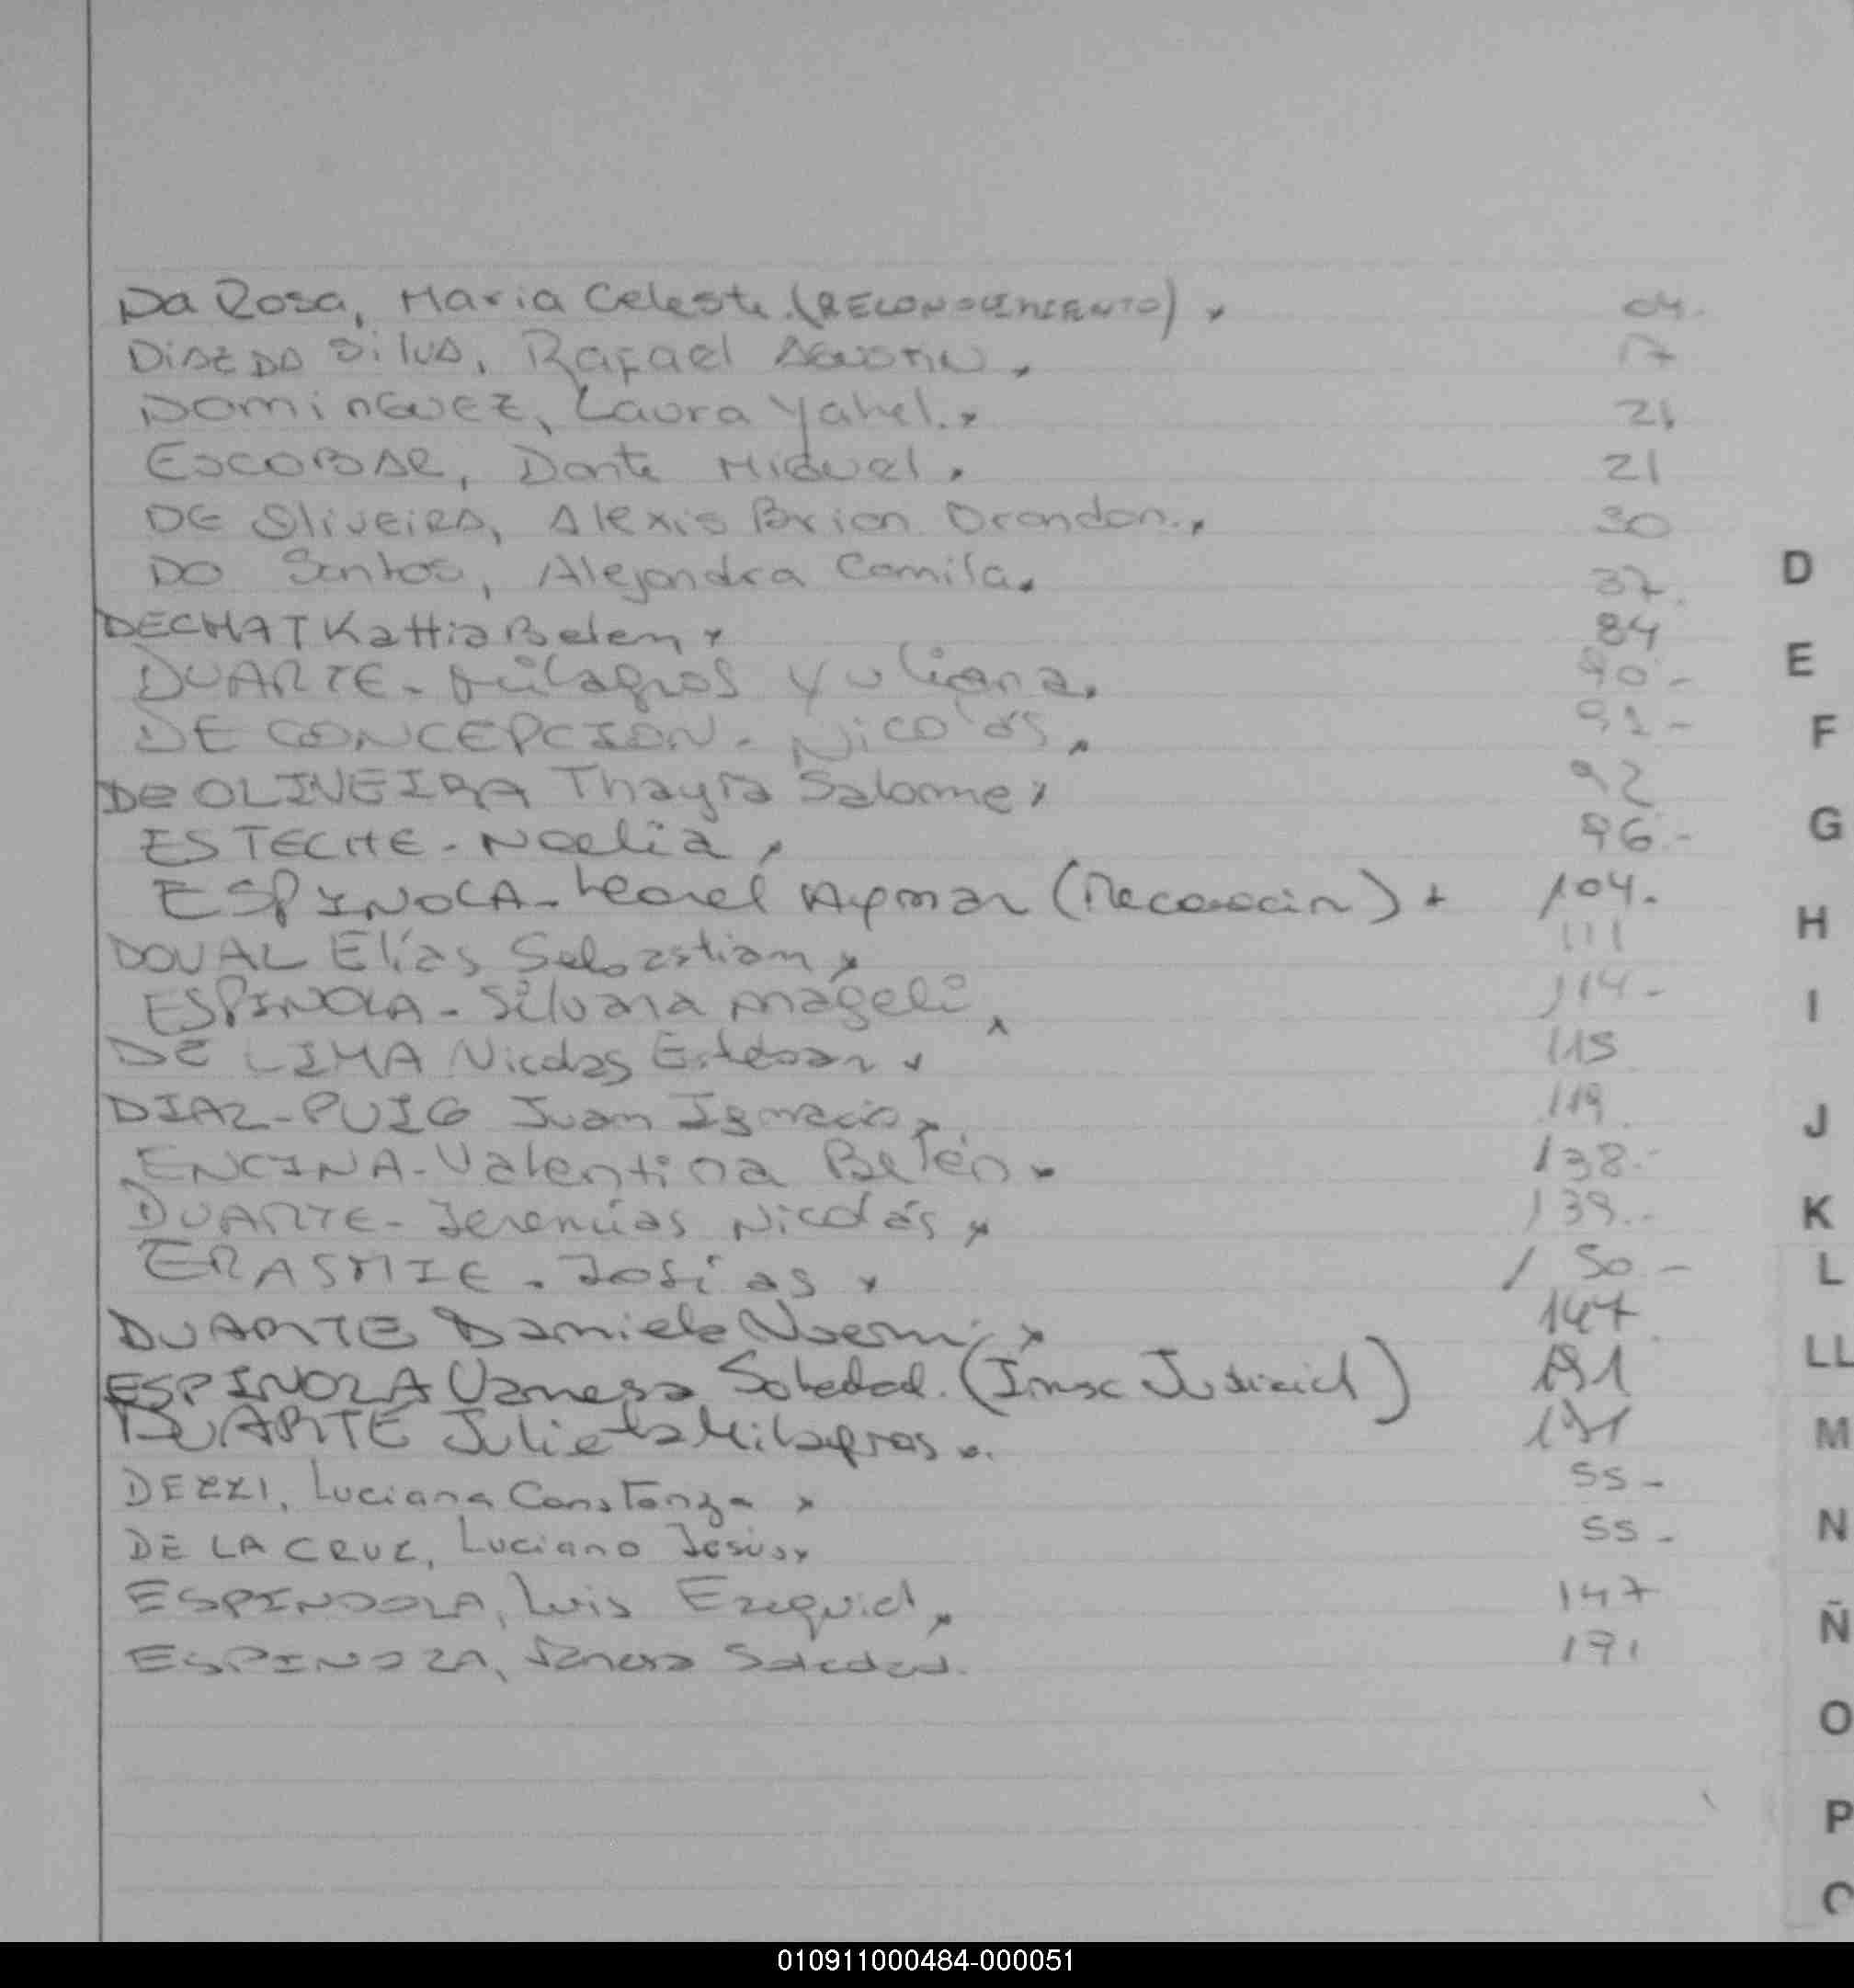 Da Rosa, Maria Celeste. (RECONOCIMIENTO) x 04.
Silva, Rafael Agustin. 17
Dominguez, Laura Yahel. x 21
Escobar, Dante Miguel. 21
DE Oliveira, Alexis Brian Brandon. 30
DO Santos, Alejandra Camila. 37.
DECHAT Kattia Belem x 84
DUARTE - Milagros Yuliana. 90.-
DE CONCEPCION - Nicolás. 91-
De OLIVEIRA Thayra Salome x 92
ESTECHE - Noelia 96.-
ESPINOLA - Leonel Aymar (Reconocim) + 104.
DOVAL Elías Sebastian x 111
ESPINOLA - Silvana Mageli x 114-
DE LIMA Nicolas Esteban x 115
DIAZ-PUIG Juan Ignacio x 119
ENCINA - Valentina Belén x 138.-
DUARTE - Jeremías Nicolás x 139.-
ERASMIE - Josías x 150 -
DUARTE Daniela Noemi x 147
ESPINOZA Vanessa Soledad. (Insc Judicial) 191
DUARTE Julieta Milagros x. 191
DEZZI, Luciana Constanza x 55 -
DE LA CRUZ, Luciano Jesús x 55 -
ESPINDOLA, Luis Ezequiel x 147
ESPINOZA, Vanesa Soledad. 191
D
E
F
G
H
I
J
K
L
LL
M
N
Ñ
O
P
010911000484-000051